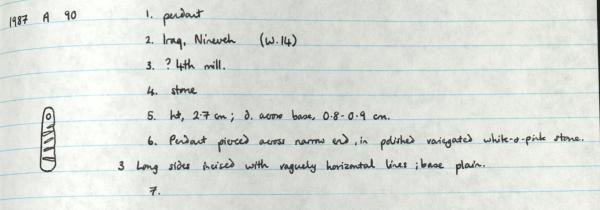 1987 A 90
1. pendant
2. Iraq, Nineveh (W.14)
3. ? 4th mill.
4. stone
5. ht, 2.7 cm; d. across base, 0.8-0.9 cm.
6. Pendant pierced across narrow end, in polished variegated white-o-pink stone.
3 Long sides incised with vaguely horizontal lines; base plain.
7.